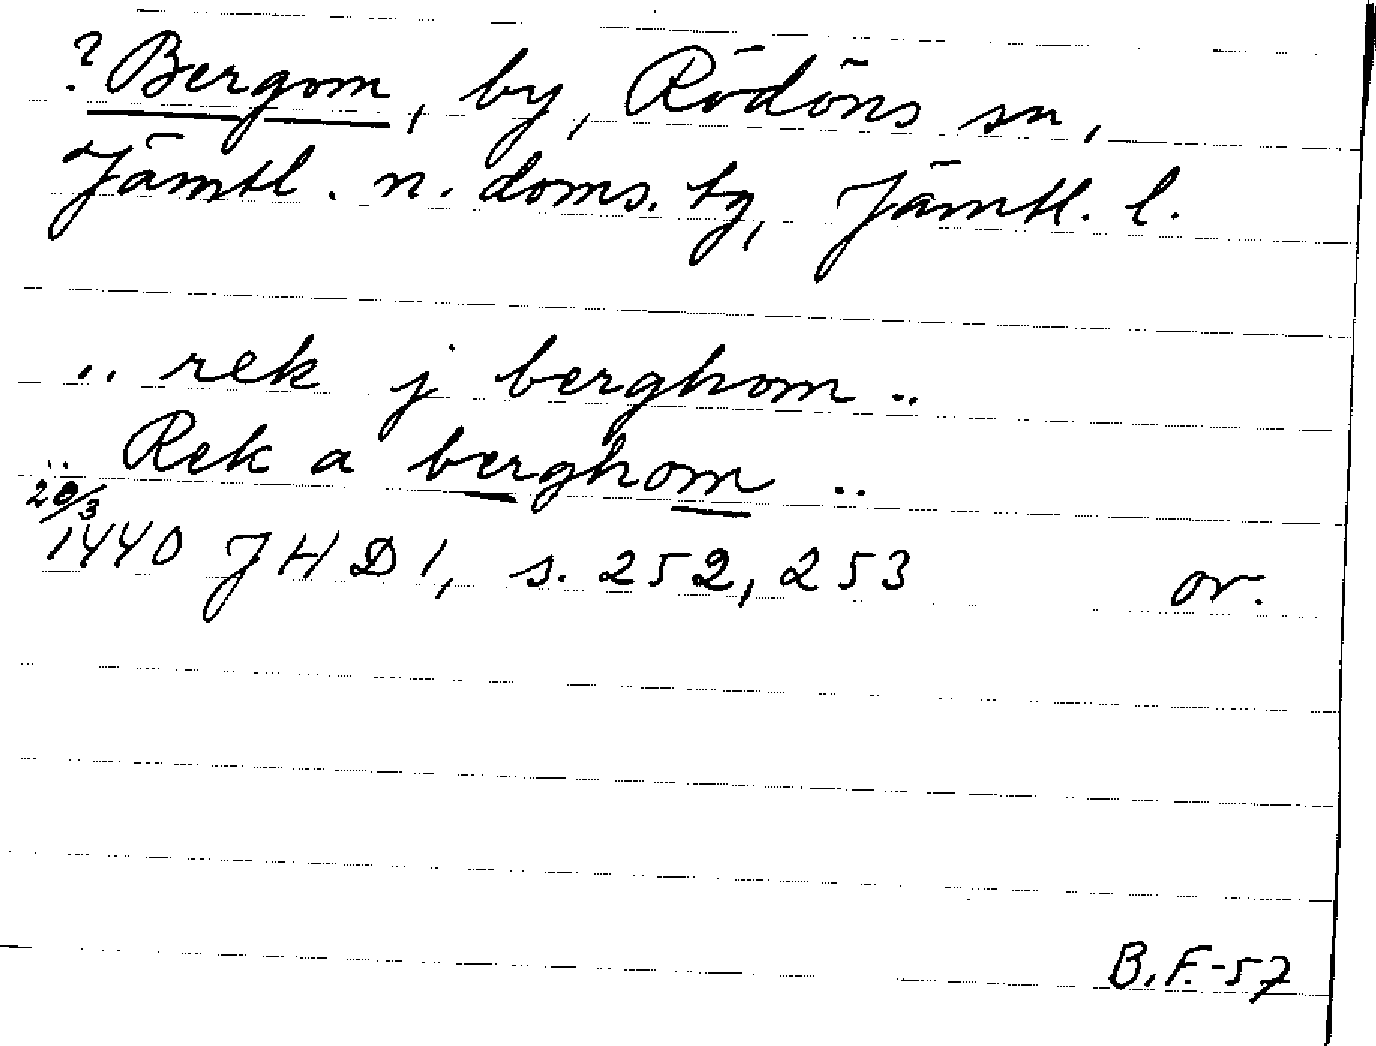 ? Bergom, by, Rödöns sn,
Jämtl. n. doms. tg, Jämtl. l.
.. rek j berghom ..
.. Rek a berghom ..
20/3
1440 JHD 1, s. 252, 253 or.
B.F.-57